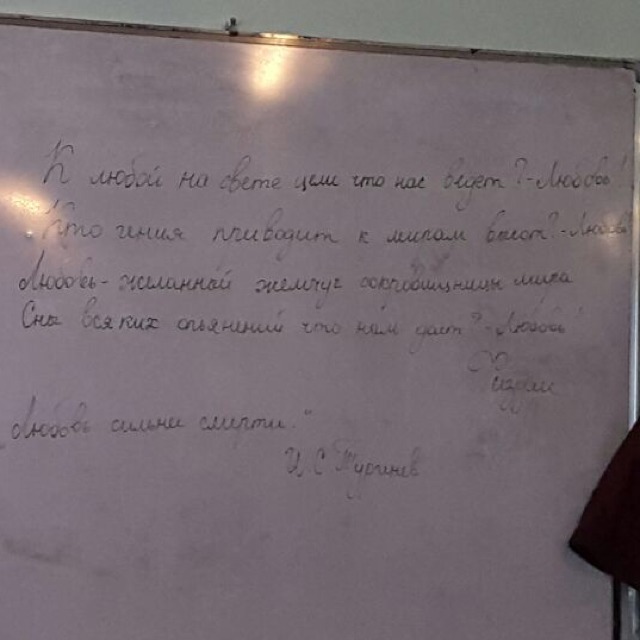 К любой на свете цели что нас ведет? - Любовь!
Кто гения приводит к мирам высот? - Любовь!
Любовь - желанный жемчуг сокровищницы мира
Сна всяких опьянений что нам дает? - Любовь!
"Любовь сильнее смерти."
И. С. Тургенев